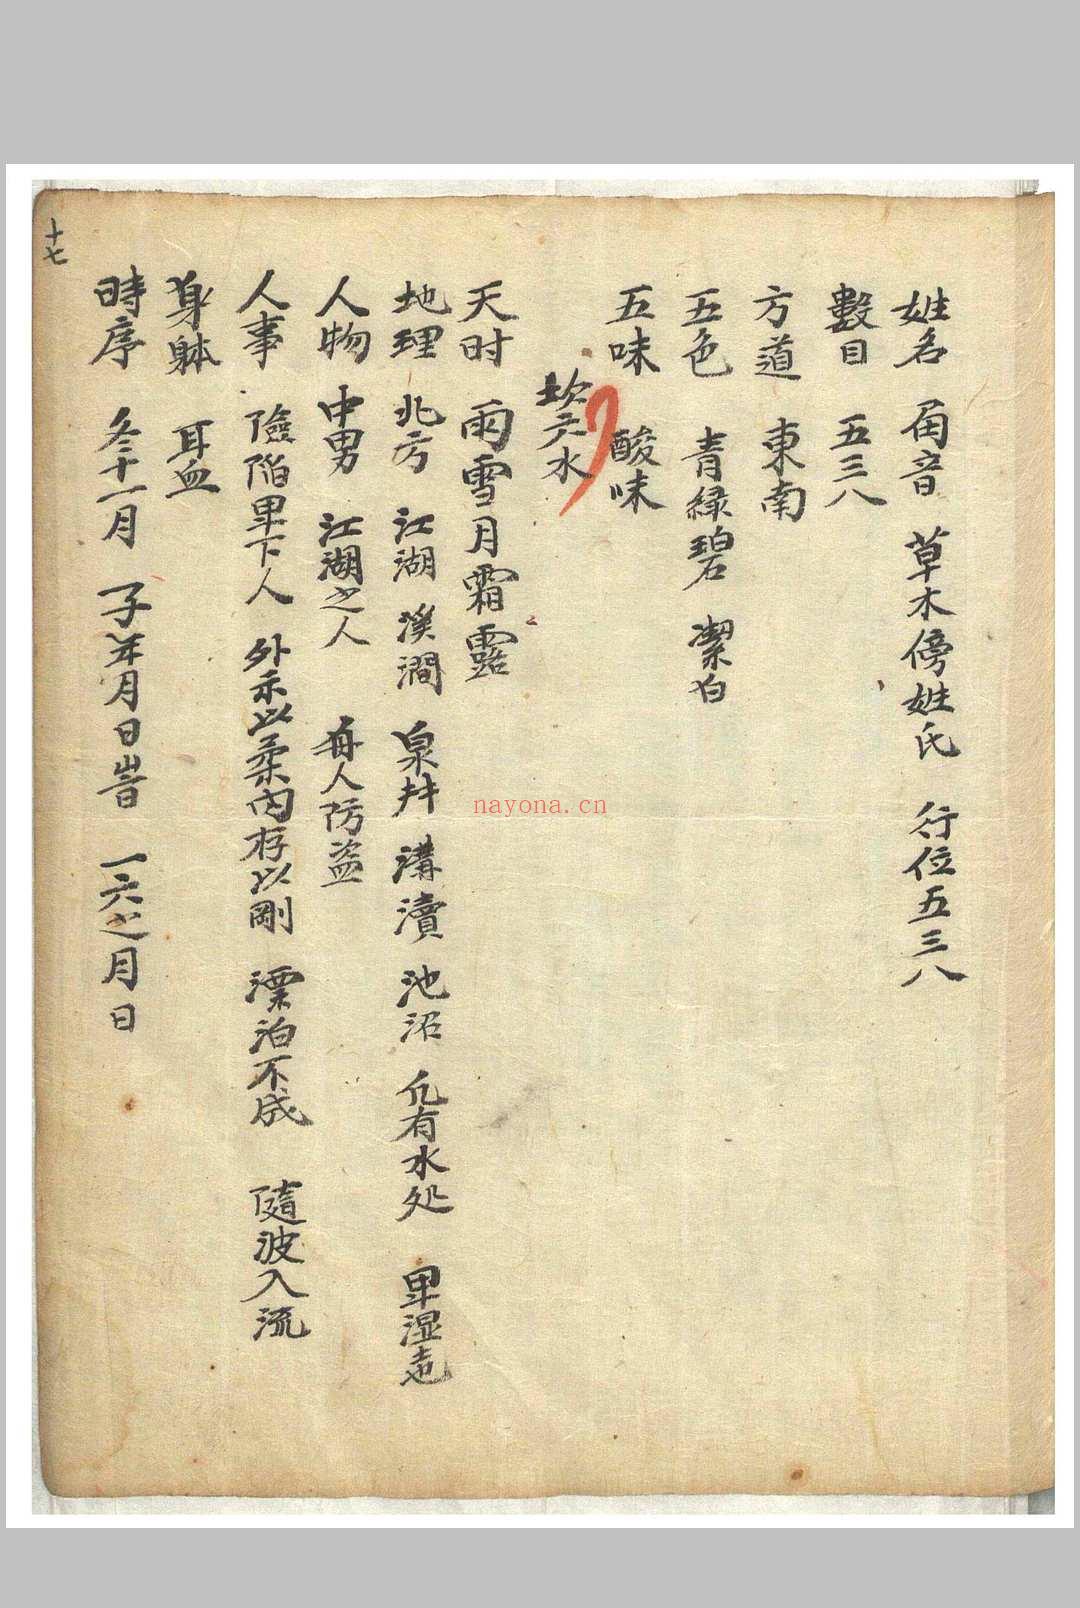 姓名 角音 草木傍姓氏 行位五三八
數目 五三八
方道 東南
五色 青緑碧 潔白
五味 酸味
坎六水
天时 雨雪月霜露
地理 北方 江湖 溪澗 泉井 溝瀆 池沼 凢有水处 卑湿
人物 中男 江湖之人 人防盗
人事 險陷卑下人 外示以柔内存以剛 漂泊不成 隨波入流
身躰 耳血
時序 冬十一月 子年月日旹 一六之月日
十七
nayona.cn